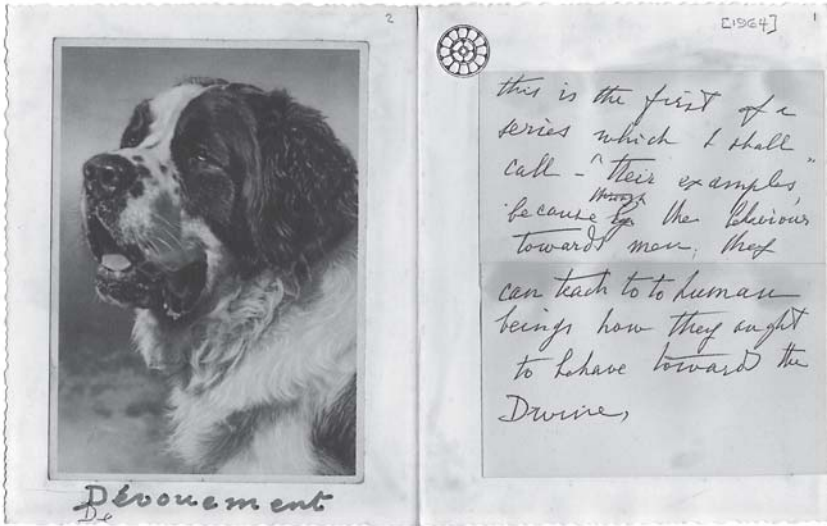 2
Dévouement
De
[1964] 1
this is the first of a
series which I shall
call – "their examples"
because through the behaviour
towards men, they
can teach to to human
beings how they ought
to behave towards the
Divine,